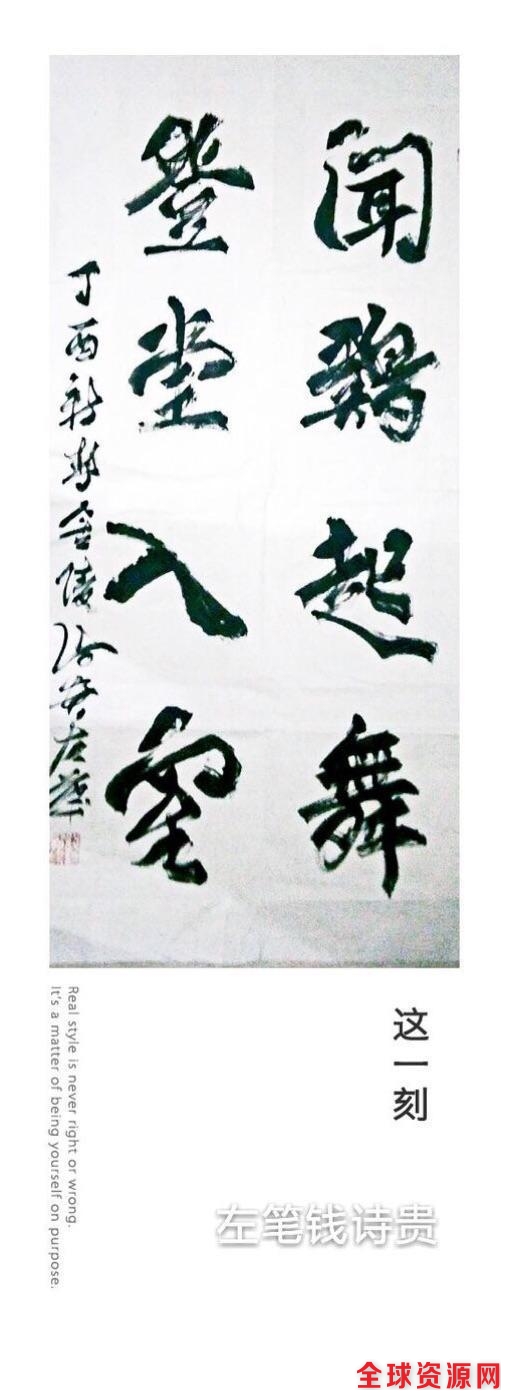 闻鸡起舞
登堂入室
丁酉新春金陵
左笔
这一刻
Real style is never right or wrong.
It's a matter of being yourself on purpose.
左笔钱诗贵
全球资源网